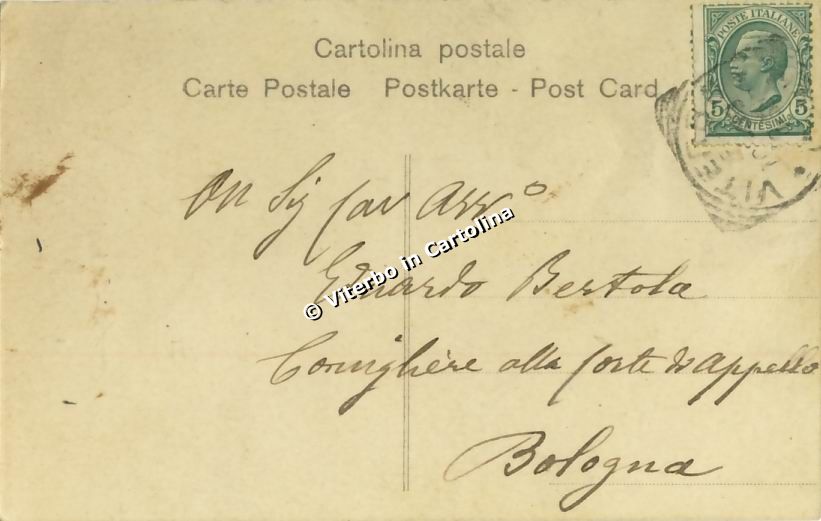 Cartolina postale
Carte Postale Postkarte - Post Card
POSTE ITALIANE
5 CENTESIMI 5
VITERBO
On Sig Cav Avv°
Eduardo Bertola
Consigliere alla Corte d'Appello
Bologna
© Viterbo in Cartolina